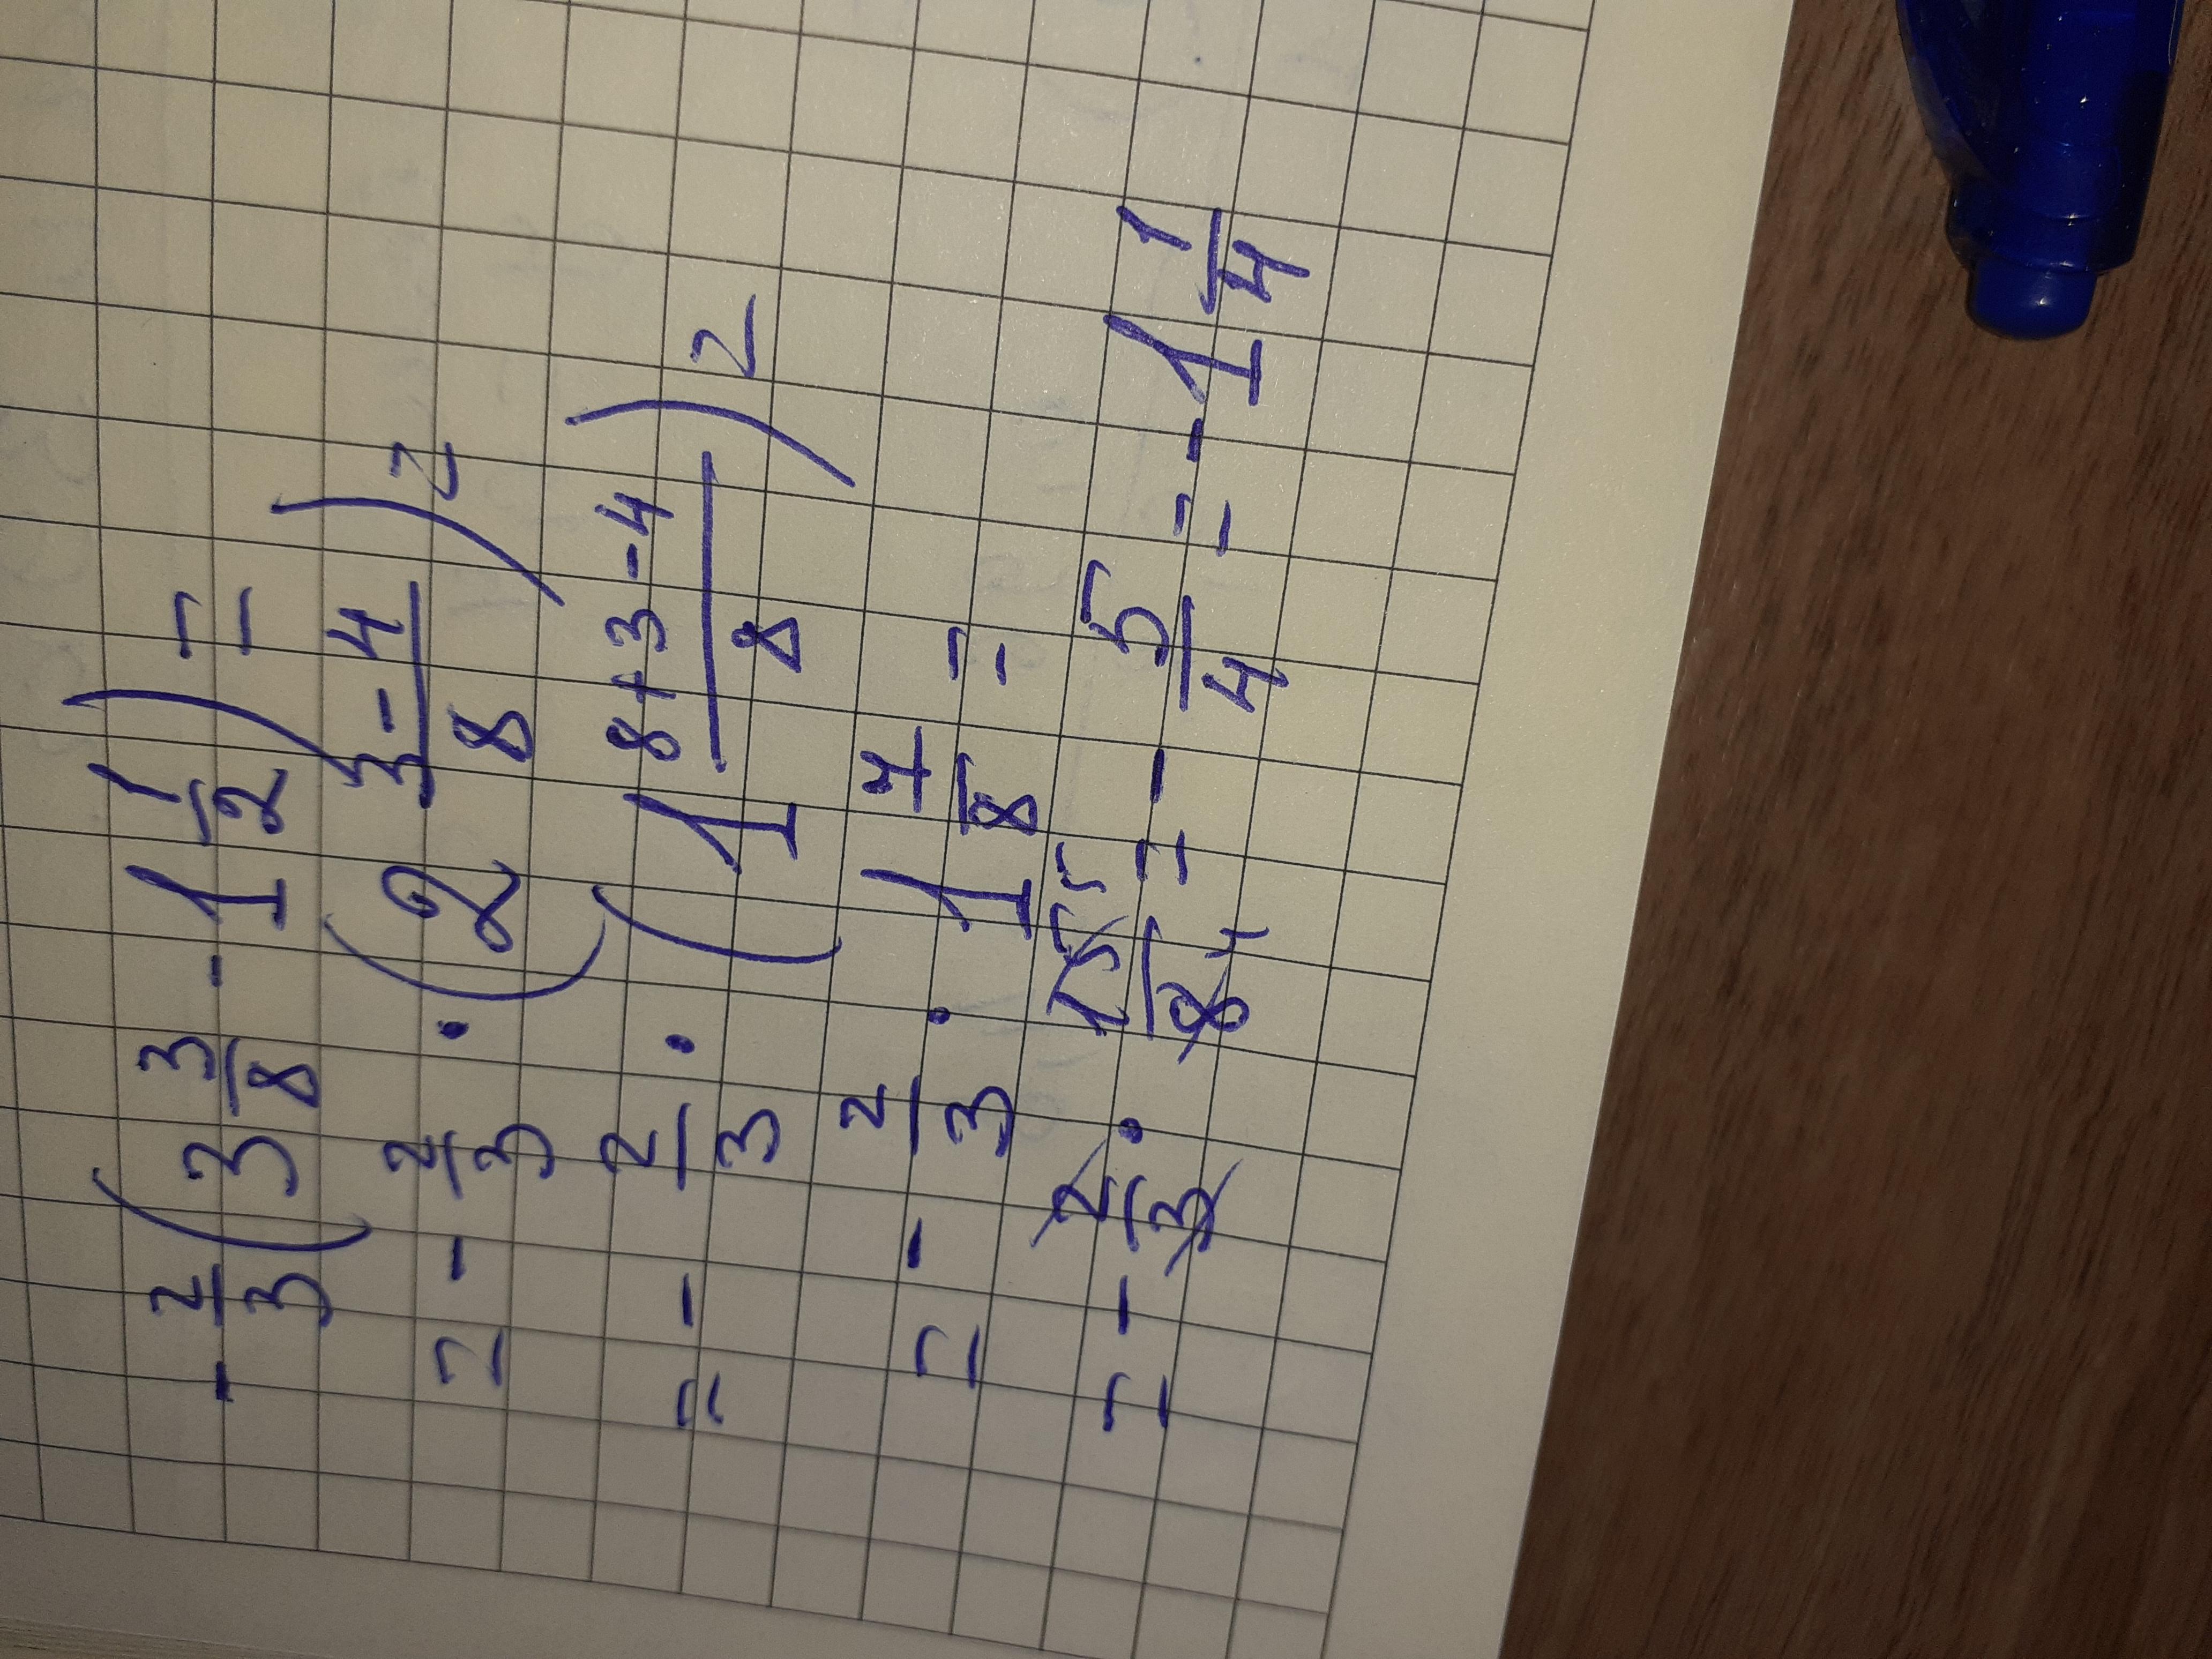 - 2/3 (3 3/8 - 1 1/2) =
= - 2/3 · (2 3-4/8) =
= - 2/3 · (1 8+3-4/8) =
= - 2/3 · 1 7/8 =
= - 2/3 · 15/8 = - 5/4 = - 1 1/4